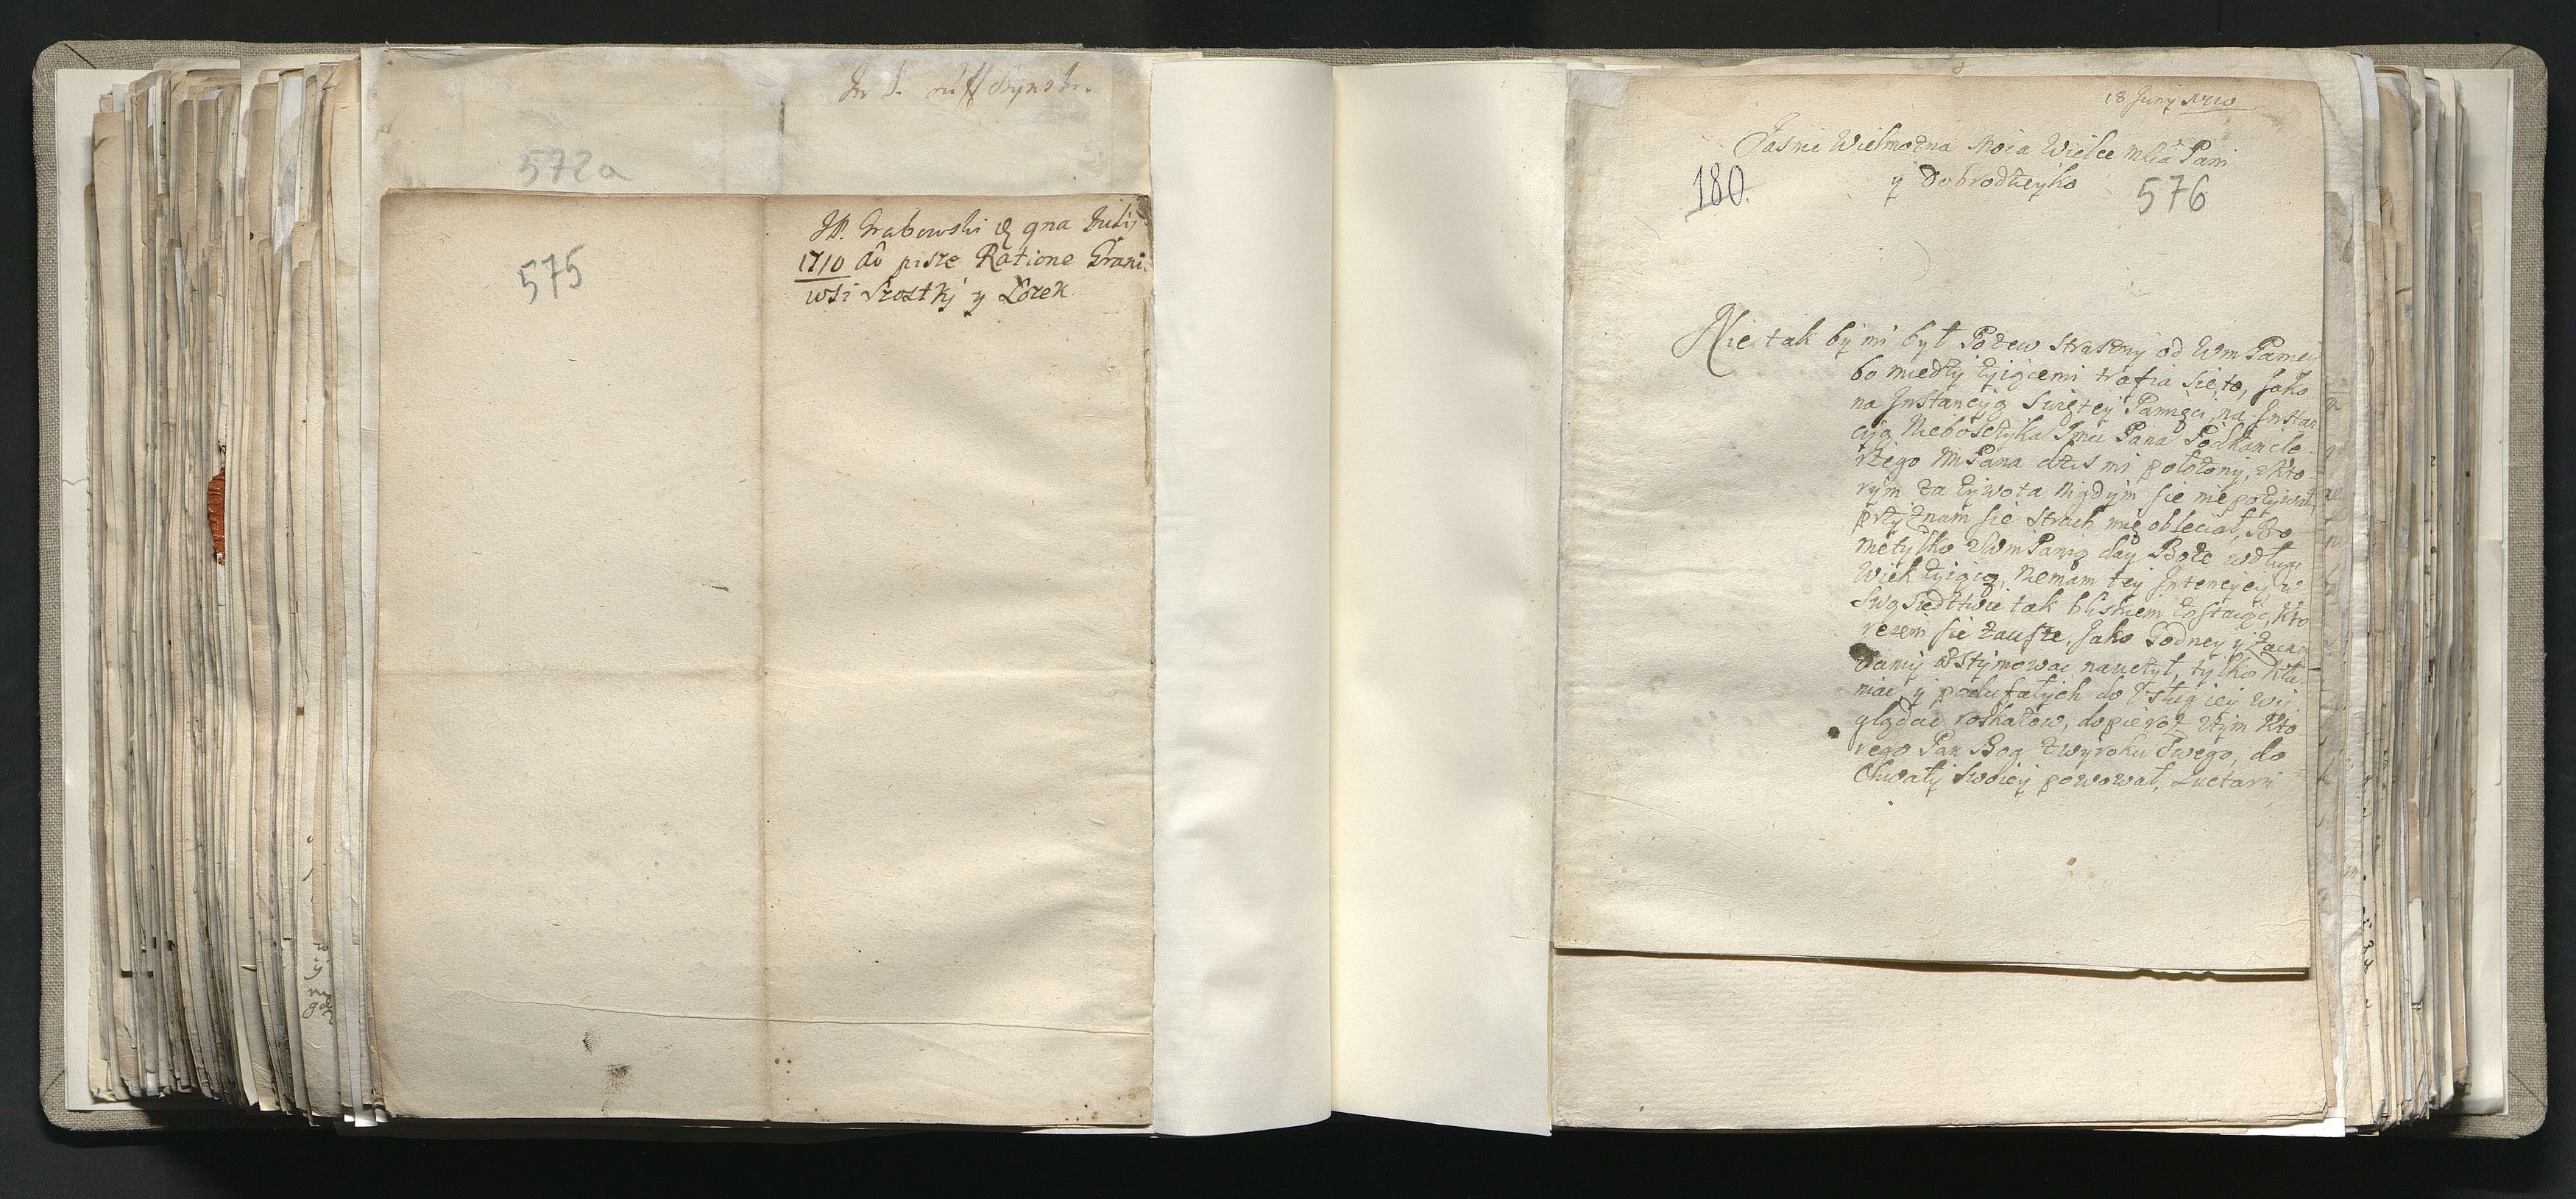 572a
575
JP. Grabowski d gna Julij
1710 do pisze Ratione Grani
wsi Szostkj y Lozek.
18 Junij 1710
Jasnie Wielmozna Moia Wielce Mscia Pani
y Dobrodzieyko
180.
576
Nie tak by mi był Pozew straszny od Wm Paniey
bo miedzy zyiącemi trafia sie to, Jako
na Instancyją Swiętey Pamięci, na Instan
cyją Nieboszczyka Jmci Pana Podkancle
rzego MPana dzis mi położony, z kto
rym za zywota nigdym sie nie pozywał,
przyznam sie strach mię obleciał, Bo
nie tylko z Wm Panią day Boze w długi
Wiek zyiącą, niemam tey Intencyey w
Swąsiedztwie tak bliskiem zostaiąc, kto
rezem sie zausze, Jako Godney y Zacn
Damy Estymowac nauczył, tylko kła
niac y poufałych do Usług iey wy
glądac roskazow, dopieroz z tym kto
rego Pan Bog z wyroku Swego, do
Chwały Swoiey powował, Luctari